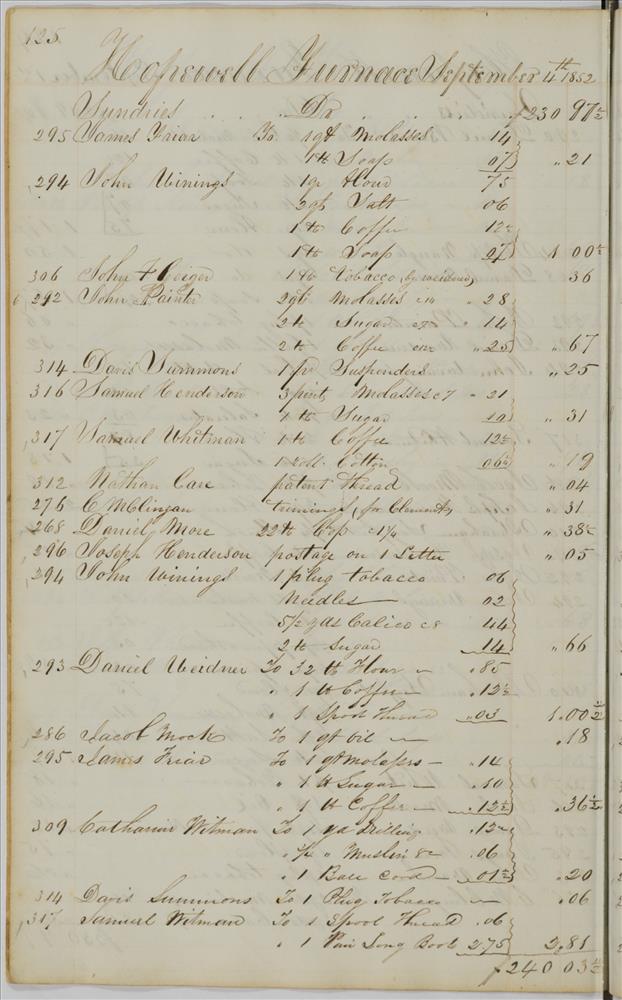 125
Hopewell Furnace September 4th 1852
Sundries . . . Dr . . . . . $230 97½
295 James Friar To 1 qt Molasses 14
1 lb Soap 07 " 21
294 John Winings 1 qr Flour 75
2 qts Salt 06
1 lb Coffee 12½
1 lb Soap 07 1 00½
306 John F Geiger 1 lb tobacco 36
292 John Painter 2 qts Molasses c14 " 28
2 lb Sugar c7 " 14
2 lb Coffee " 25 " 67
314 Davis Summons 1 pr Suspenders " 25
316 Samuel Henderson 3 pints Molasses c7 " 21
1 lb Sugar 10 " 31
317 Samuel Whitman 1 lb Coffee 12½
1 roll Cotton 06½ " 19
312 Nathan Care patent thread " 04
276 C McClingan trimings for Clements " 31
268 Daniel More 22 lb c1¾ " 38½
296 Joseph Henderson postage on 1 Letter " 05
294 John Winings 1 plug tobacco 06
Needles 02
5½ yds Calico c8 44
2 lb Sugar 14 " 66
293 Daniel Weidner To 32 lb Flour .85
" 1 lb Coffee .12½
" 1 Spool Thread .03 1.00½
286 Jacob Mock To 1 qt Oil .18
295 James Friar To 1 qt Molasses .14
" 1 lb Sugar .10
" 1 lb Coffee .12½ .36½
309 Catharine Witman To 1 yd drilling .12½
" ¾ " Muslin 8c .06
" 1 Ball Cord .01½ .20
314 Davis Summons To 1 Plug Tobacco .06
317 Samuel Witman To 1 Spool Thread .06
" 1 Pair Long Boots 2.75 2.81
$240 03½